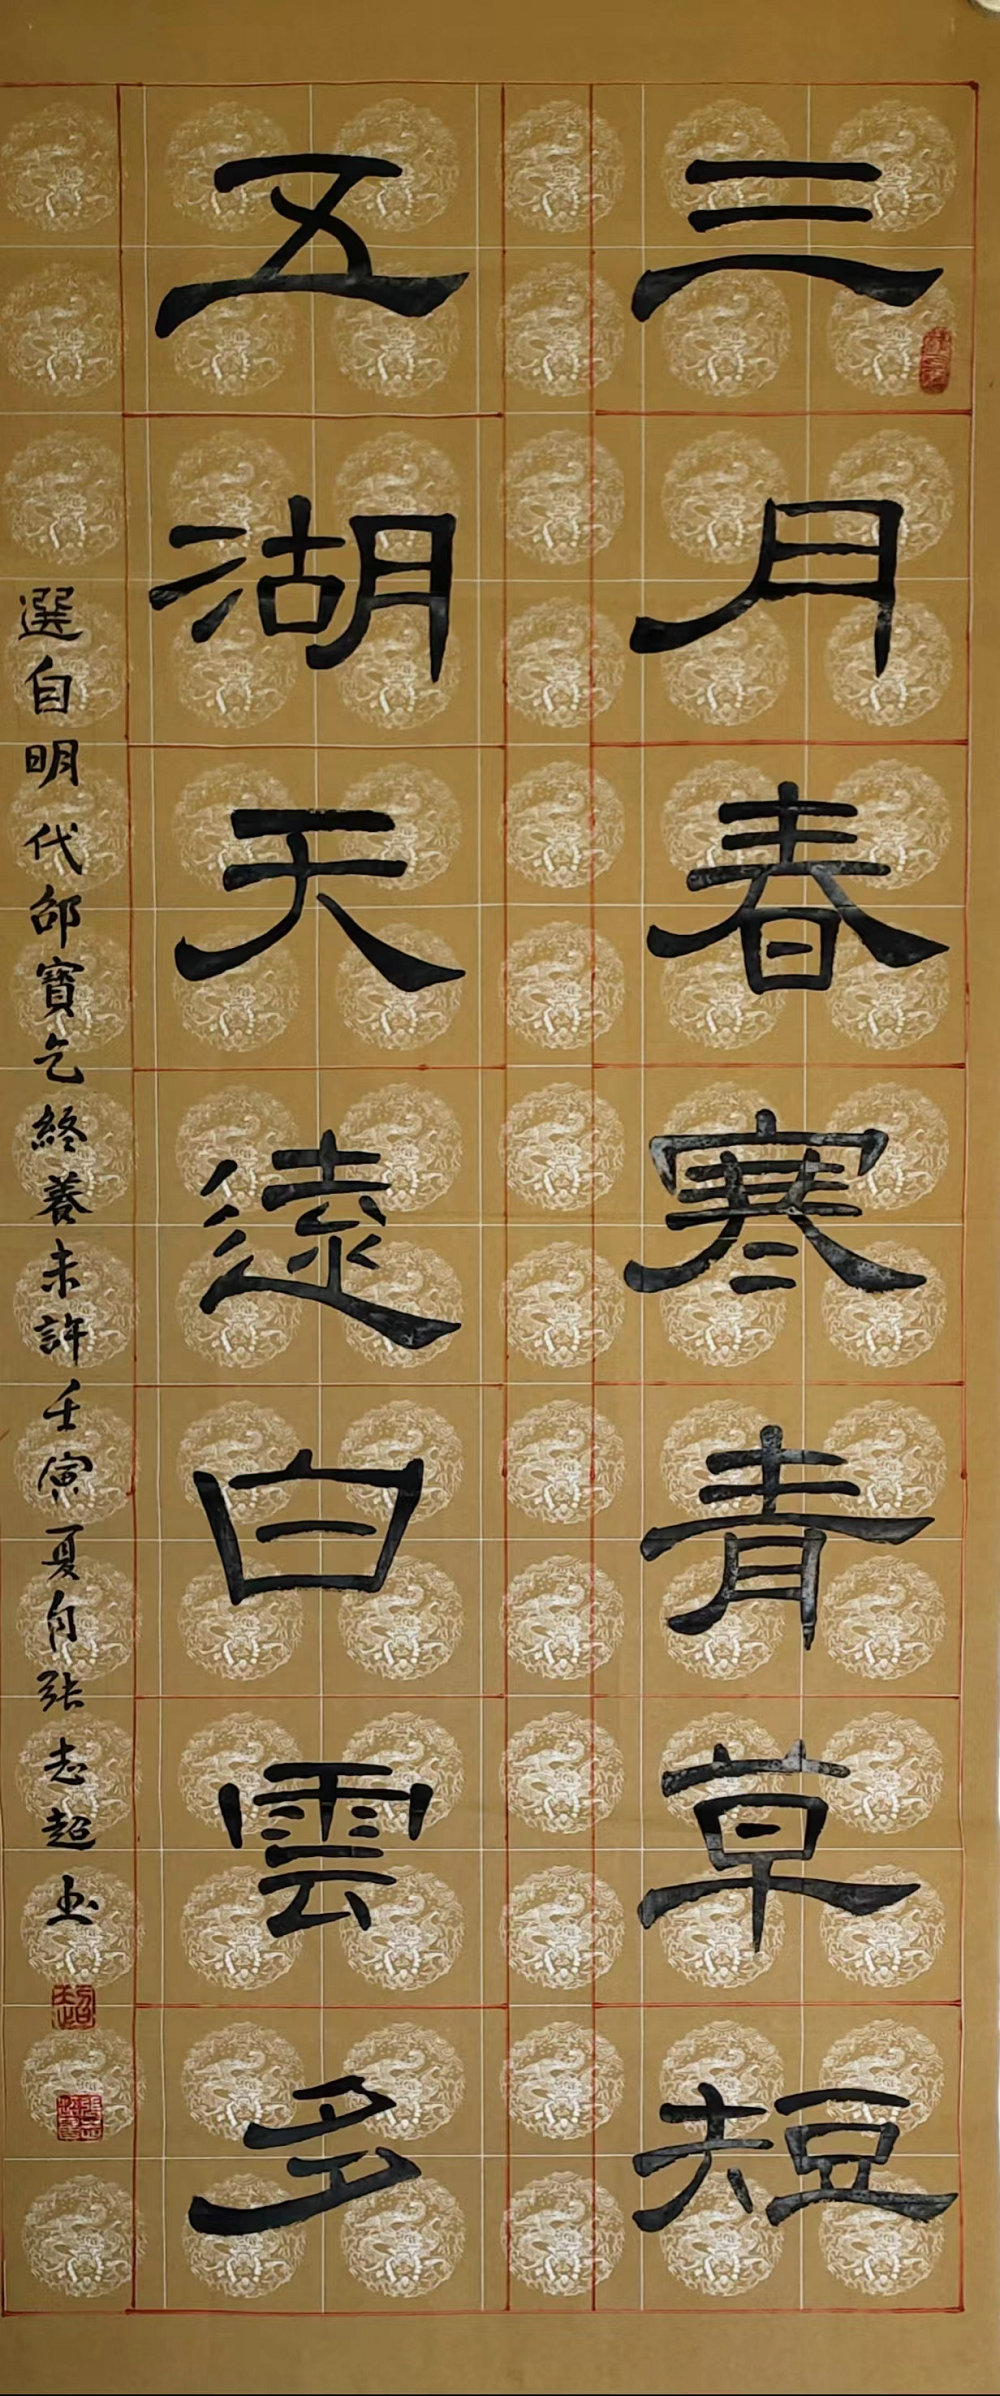 三月春寒青草短
五湖天遠白雲多
選自明代邵寶乞終養未許壬寅夏月張志超书